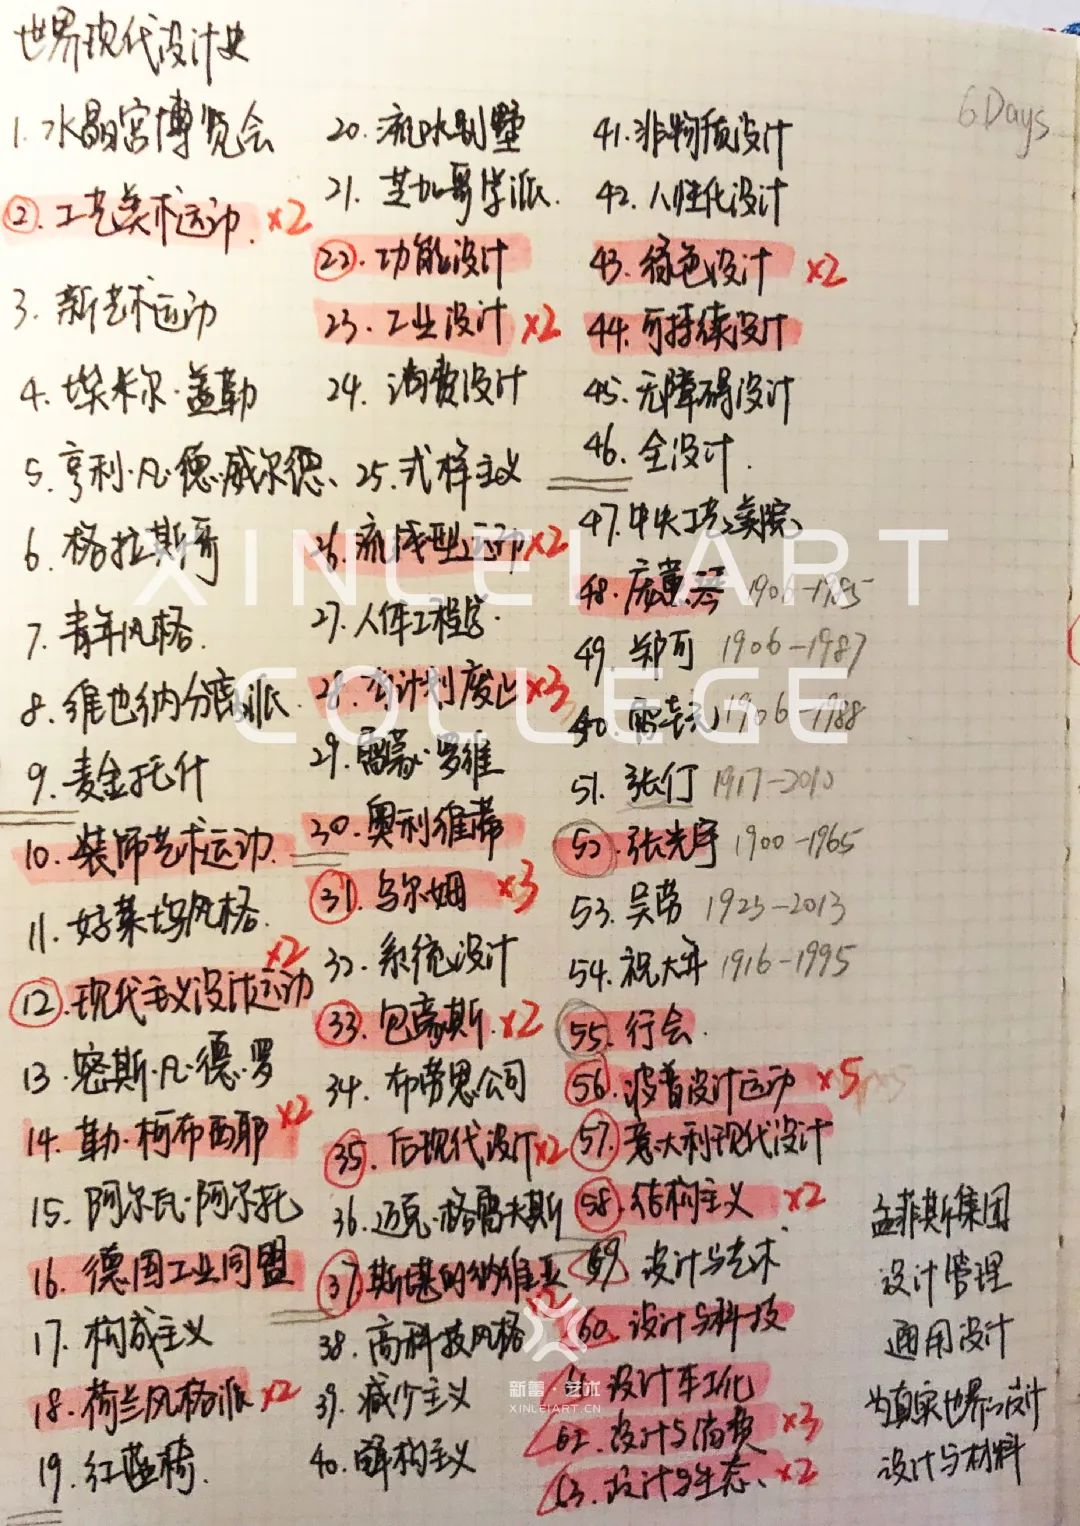 世界现代设计史
6 Days
1. 水晶宫博览会
②. 工艺美术运动. ×2
3. 新艺术运动
4. 埃米尔·盖勒
5. 亨利·凡·德·威尔德、
6. 格拉斯哥
7. 青年风格.
8. 维也纳分离派.
9. 麦金托什
10. 装饰艺术运动.
11. 好莱坞风格.
⑫. 现代主义设计运动 ×2
13. 密斯·凡·德·罗
14. 勒·柯布西耶 ×2
15. 阿尔瓦·阿尔托
16. 德国工业同盟
17. 构成主义
18. 荷兰风格派 ×2
19. 红蓝椅.
20. 流水别墅
21. 芝加哥学派.
㉒. 功能设计
23. 工业设计 ×2
24. 消费设计
25. 式样主义
26. 流线型运动 ×2
27. 人体工程学.
28. 有计划废止 ×3
29. 雷蒙·罗维
30. 奥利维蒂
㉛. 乌尔姆 ×3
32. 系统设计
㉝. 包豪斯. ×2
34. 布劳恩公司
㉟. 后现代设计 ×2
36. 迈克·格雷夫斯
㊲. 斯堪的纳维亚
38. 高科技风格
39. 减少主义
40. 解构主义
41. 非物质设计
42. 人性化设计
43. 绿色设计 ×2
44. 可持续设计
45. 无障碍设计
46. 全设计.
47. 中央工艺美院
48. 庞薰琹 1906-1985
49. 郑可 1906-1987
50. 雷圭元 1906-1988
51. 张仃 1917-2010
㊾52. 张光宇 1900-1965
53. 吴劳 1923-2013
54. 祝大年 1916-1995
55. 行会.
56. 波普设计运动 ×5
57. 意大利现代设计
58. 结构主义 ×2
59. 设计与艺术
60. 设计与科技
61. 设计车工化
62. 设计与消费 ×3
63. 设计与生态、 ×2
孟菲斯集团
设计管理
通用设计
为真实世界设计
设计与材料
XINLEI ART
COLLEGE
新蕾·艺术
XINLEIART.CN